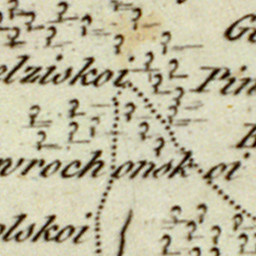 elziskoi
Pin
wrochonskoi
olskoi